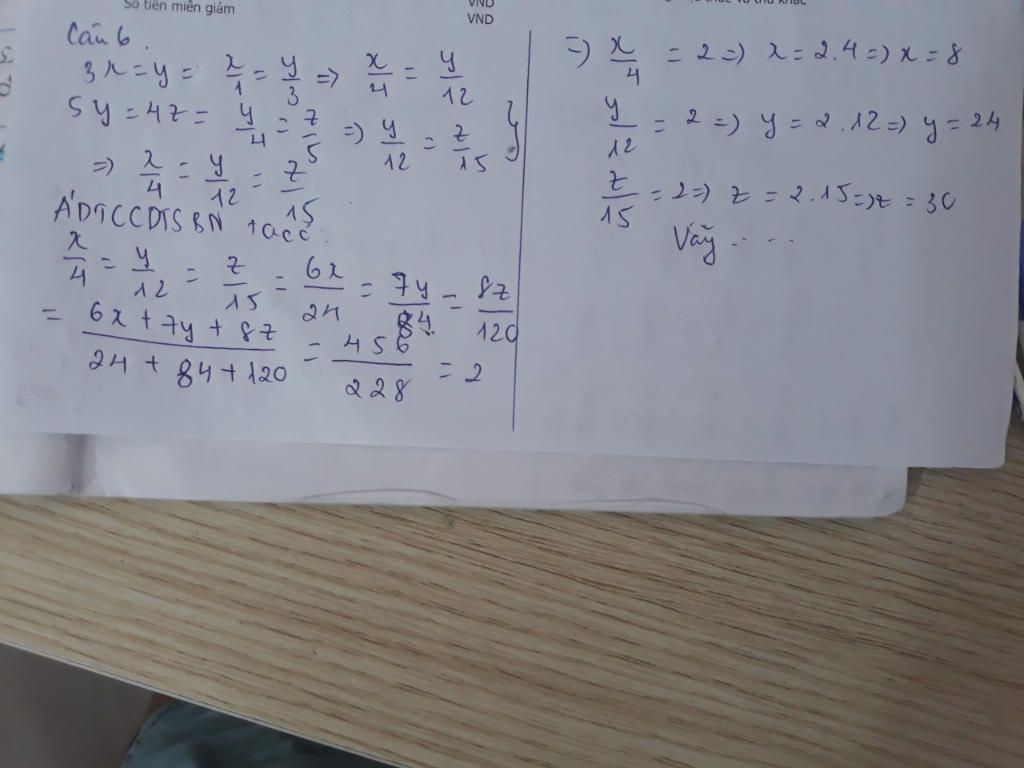 Số tiền miễn giảm
VND
VND
Câu 6.
3x = y = x/1 = y/3 => x/4 = y/12
5y = 4z = y/4 = z/5 => y/12 = z/15 }
=> x/4 = y/12 = z/15
ÁDTCCDTSBN ta có:
x/4 = y/12 = z/15 = 6x/24 = 7y/84 = 8z/120
= (6x + 7y + 8z)/(24 + 84 + 120) = 456/228 = 2
=> x/4 = 2 => x = 2.4 => x = 8
y/12 = 2 => y = 2.12 => y = 24
z/15 = 2 => z = 2.15 => z = 30
Vậy ....